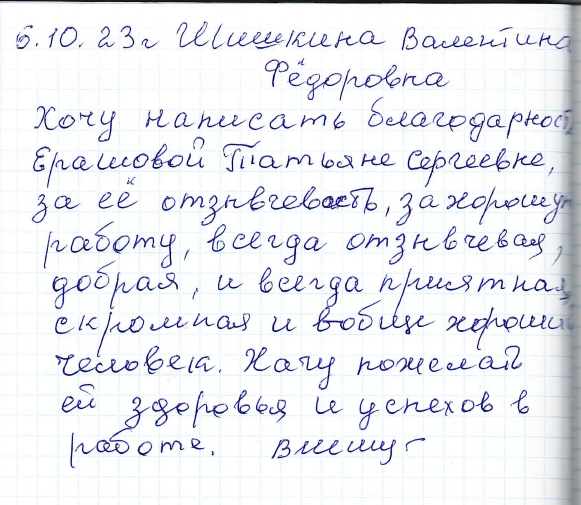 6.10.23г Шишкина Валентина
Фёдоровна
Хочу написать благодарность
Ерашовой Татьяне Сергеевне,
за её отзнвчевость, за хорошую
работу, всегда отзнвчевая,
добрая, и всегда приятная
скромная и вобще хороший
человек. Хачу пожелать
ей здоровья и успехов в
работе.